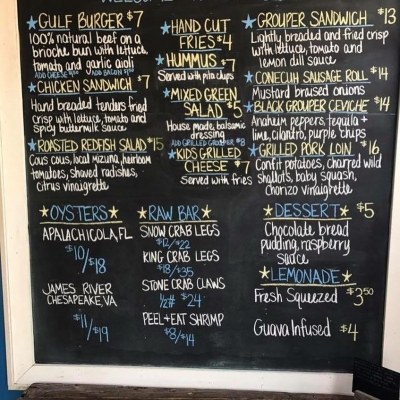 GULF BURGER $7
100% natural beef on a
brioche bun with lettuce,
tomato and garlic aioli
CHICKEN SANDWICH $7
Hand breaded tenders fried
crisp with lettuce, tomato and
spicy buttermilk sauce
ROASTED REDFISH SALAD $15
Cous cous, local mizuna, heirloom
tomatoes, shaved radishes,
citrus vinaigrette
HAND CUT
FRIES $4
HUMMUS $7
Served with pita chips
MIXED GREEN
SALAD $5
House made, balsamic
dressing
ADD GRILLED GROUPER $8
KIDS GRILLED
CHEESE $7
Served with fries
GROUPER SANDWICH $13
Lightly breaded and fried crisp
with lettuce, tomato and
lemon dill sauce
CONECUH SAUSAGE ROLL $14
Mustard braised onions
BLACK GROUPER CEVICHE $14
Anaheim peppers, tequila +
lime, cilantro, purple chips
GRILLED PORK LOIN $16
Confit potatoes, charred wild
shallots, baby squash,
chorizo vinaigrette
OYSTERS
APALACHICOLA, FL
$10/$18
JAMES RIVER
CHESAPEAKE, VA
$11/$19
RAW BAR
SNOW CRAB LEGS
$12/$22
KING CRAB LEGS
$18/$35
STONE CRAB CLAWS
1/2# $24
PEEL + EAT SHRIMP
$8/$14
DESSERT $5
Chocolate bread
pudding, raspberry
sauce
LEMONADE
Fresh Squeezed $3.50
Guava Infused $4